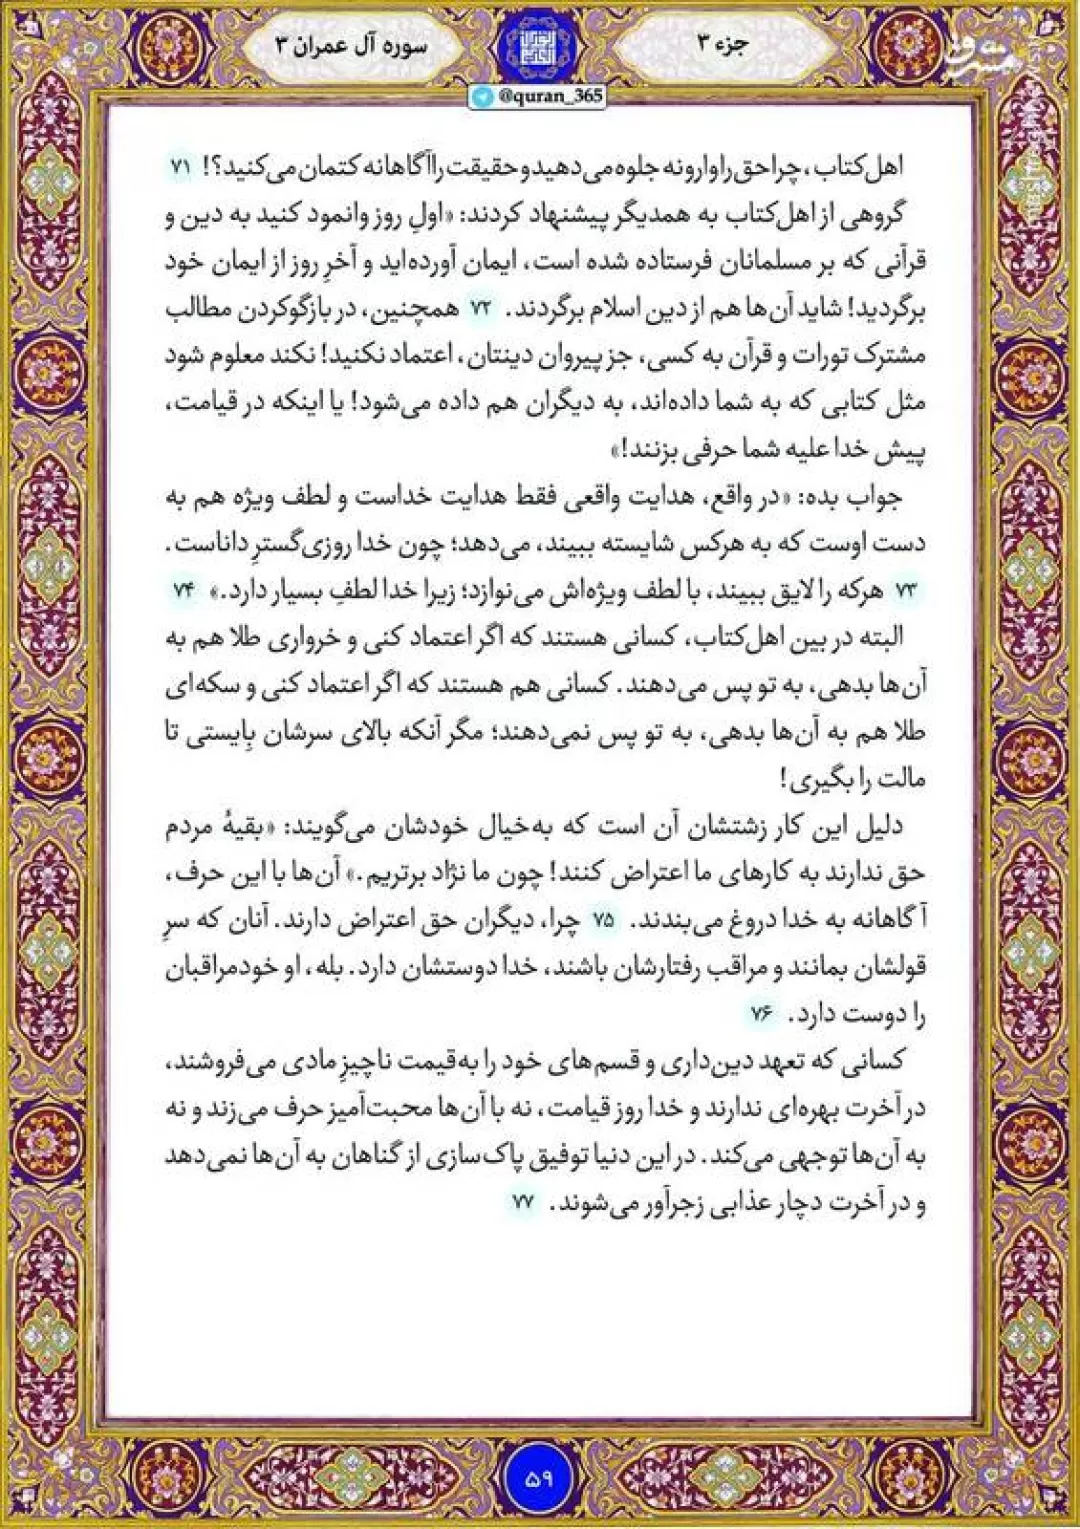 جزء ۳
سوره آل عمران ۳
مشرق
@quran_365
اهل‌کتاب، چرا حق را وارونه جلوه می‌دهید و حقیقت را آگاهانه کتمان می‌کنید؟! ۷۱
گروهی از اهل‌کتاب به همدیگر پیشنهاد کردند: «اولِ روز وانمود کنید به دین و
قرآنی که بر مسلمانان فرستاده شده است، ایمان آورده‌اید و آخرِ روز از ایمان خود
برگردید! شاید آن‌ها هم از دین اسلام برگردند. ۷۲ همچنین، در بازگوکردن مطالب
مشترک تورات و قرآن به کسی، جز پیروان دینتان، اعتماد نکنید! نکند معلوم شود
مثل کتابی که به شما داده‌اند، به دیگران هم داده می‌شود! یا اینکه در قیامت،
پیش خدا علیه شما حرفی بزنند!»
جواب بده: «در واقع، هدایت واقعی فقط هدایت خداست و لطف ویژه هم به
دست اوست که به هرکس شایسته ببیند، می‌دهد؛ چون خدا روزی‌گسترِ داناست.
۷۳ هرکه را لایق ببیند، با لطف ویژه‌اش می‌نوازد؛ زیرا خدا لطفِ بسیار دارد.» ۷۴
البته در بین اهل‌کتاب، کسانی هستند که اگر اعتماد کنی و خرواری طلا هم به
آن‌ها بدهی، به تو پس می‌دهند. کسانی هم هستند که اگر اعتماد کنی و سکه‌ای
طلا هم به آن‌ها بدهی، به تو پس نمی‌دهند؛ مگر آنکه بالای سرشان بِایستی تا
مالت را بگیری!
دلیل این کار زشتشان آن است که به‌خیال خودشان می‌گویند: «بقیهٔ مردم
حق ندارند به کارهای ما اعتراض کنند! چون ما نژاد برتریم.» آن‌ها با این حرف،
آگاهانه به خدا دروغ می‌بندند. ۷۵ چرا، دیگران حق اعتراض دارند. آنان که سرِ
قولشان بمانند و مراقب رفتارشان باشند، خدا دوستشان دارد. بله، او خودمراقبان
را دوست دارد. ۷۶
کسانی که تعهد دین‌داری و قسم‌های خود را به‌قیمت ناچیزِ مادی می‌فروشند،
در آخرت بهره‌ای ندارند و خدا روز قیامت، نه با آن‌ها محبت‌آمیز حرف می‌زند و نه
به آن‌ها توجهی می‌کند. در این دنیا توفیق پاک‌سازی از گناهان به آن‌ها نمی‌دهد
و در آخرت دچار عذابی زجرآور می‌شوند. ۷۷
۵۹